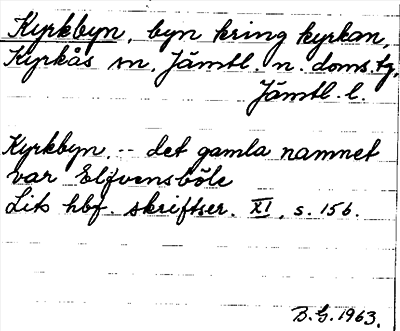 Kyrkbyn, byn kring kyrkan,
Kyrkås sn, Jämtl. n. doms. tg,
Jämtl. l.
Kyrkbyn, -- det gamla namnet
var Elfvensböle
Lits hbf. skriftser. XI, s. 156.
B.G. 1963.